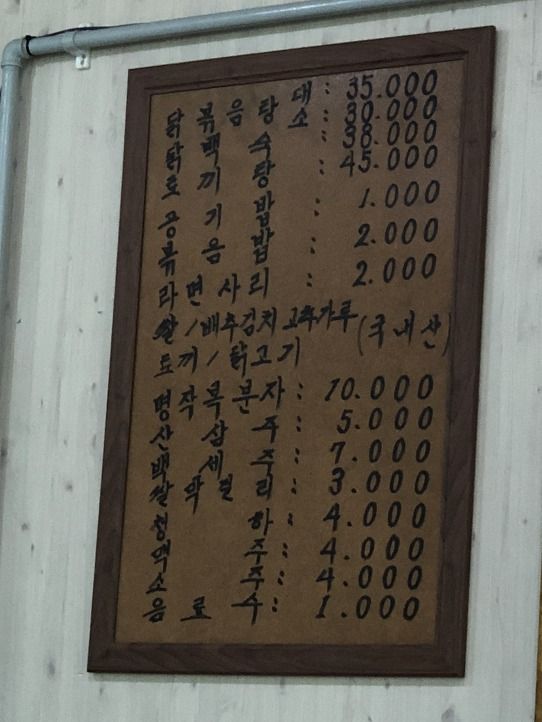 닭볶음탕 대 : 35.000
소 : 30.000
닭백숙 : 38.000
토끼탕 : 45.000
공기밥 : 1.000
볶음밥 : 2.000
라면사리 : 2.000
쌀/배추김치 고추가루 (국내산)
토끼/닭고기
명작복분자 : 10.000
산삼주 : 5.000
백세주 : 7.000
쌀막걸리 : 3.000
청하 : 4.000
맥주 : 4.000
소주 : 4.000
음료수 : 1.000